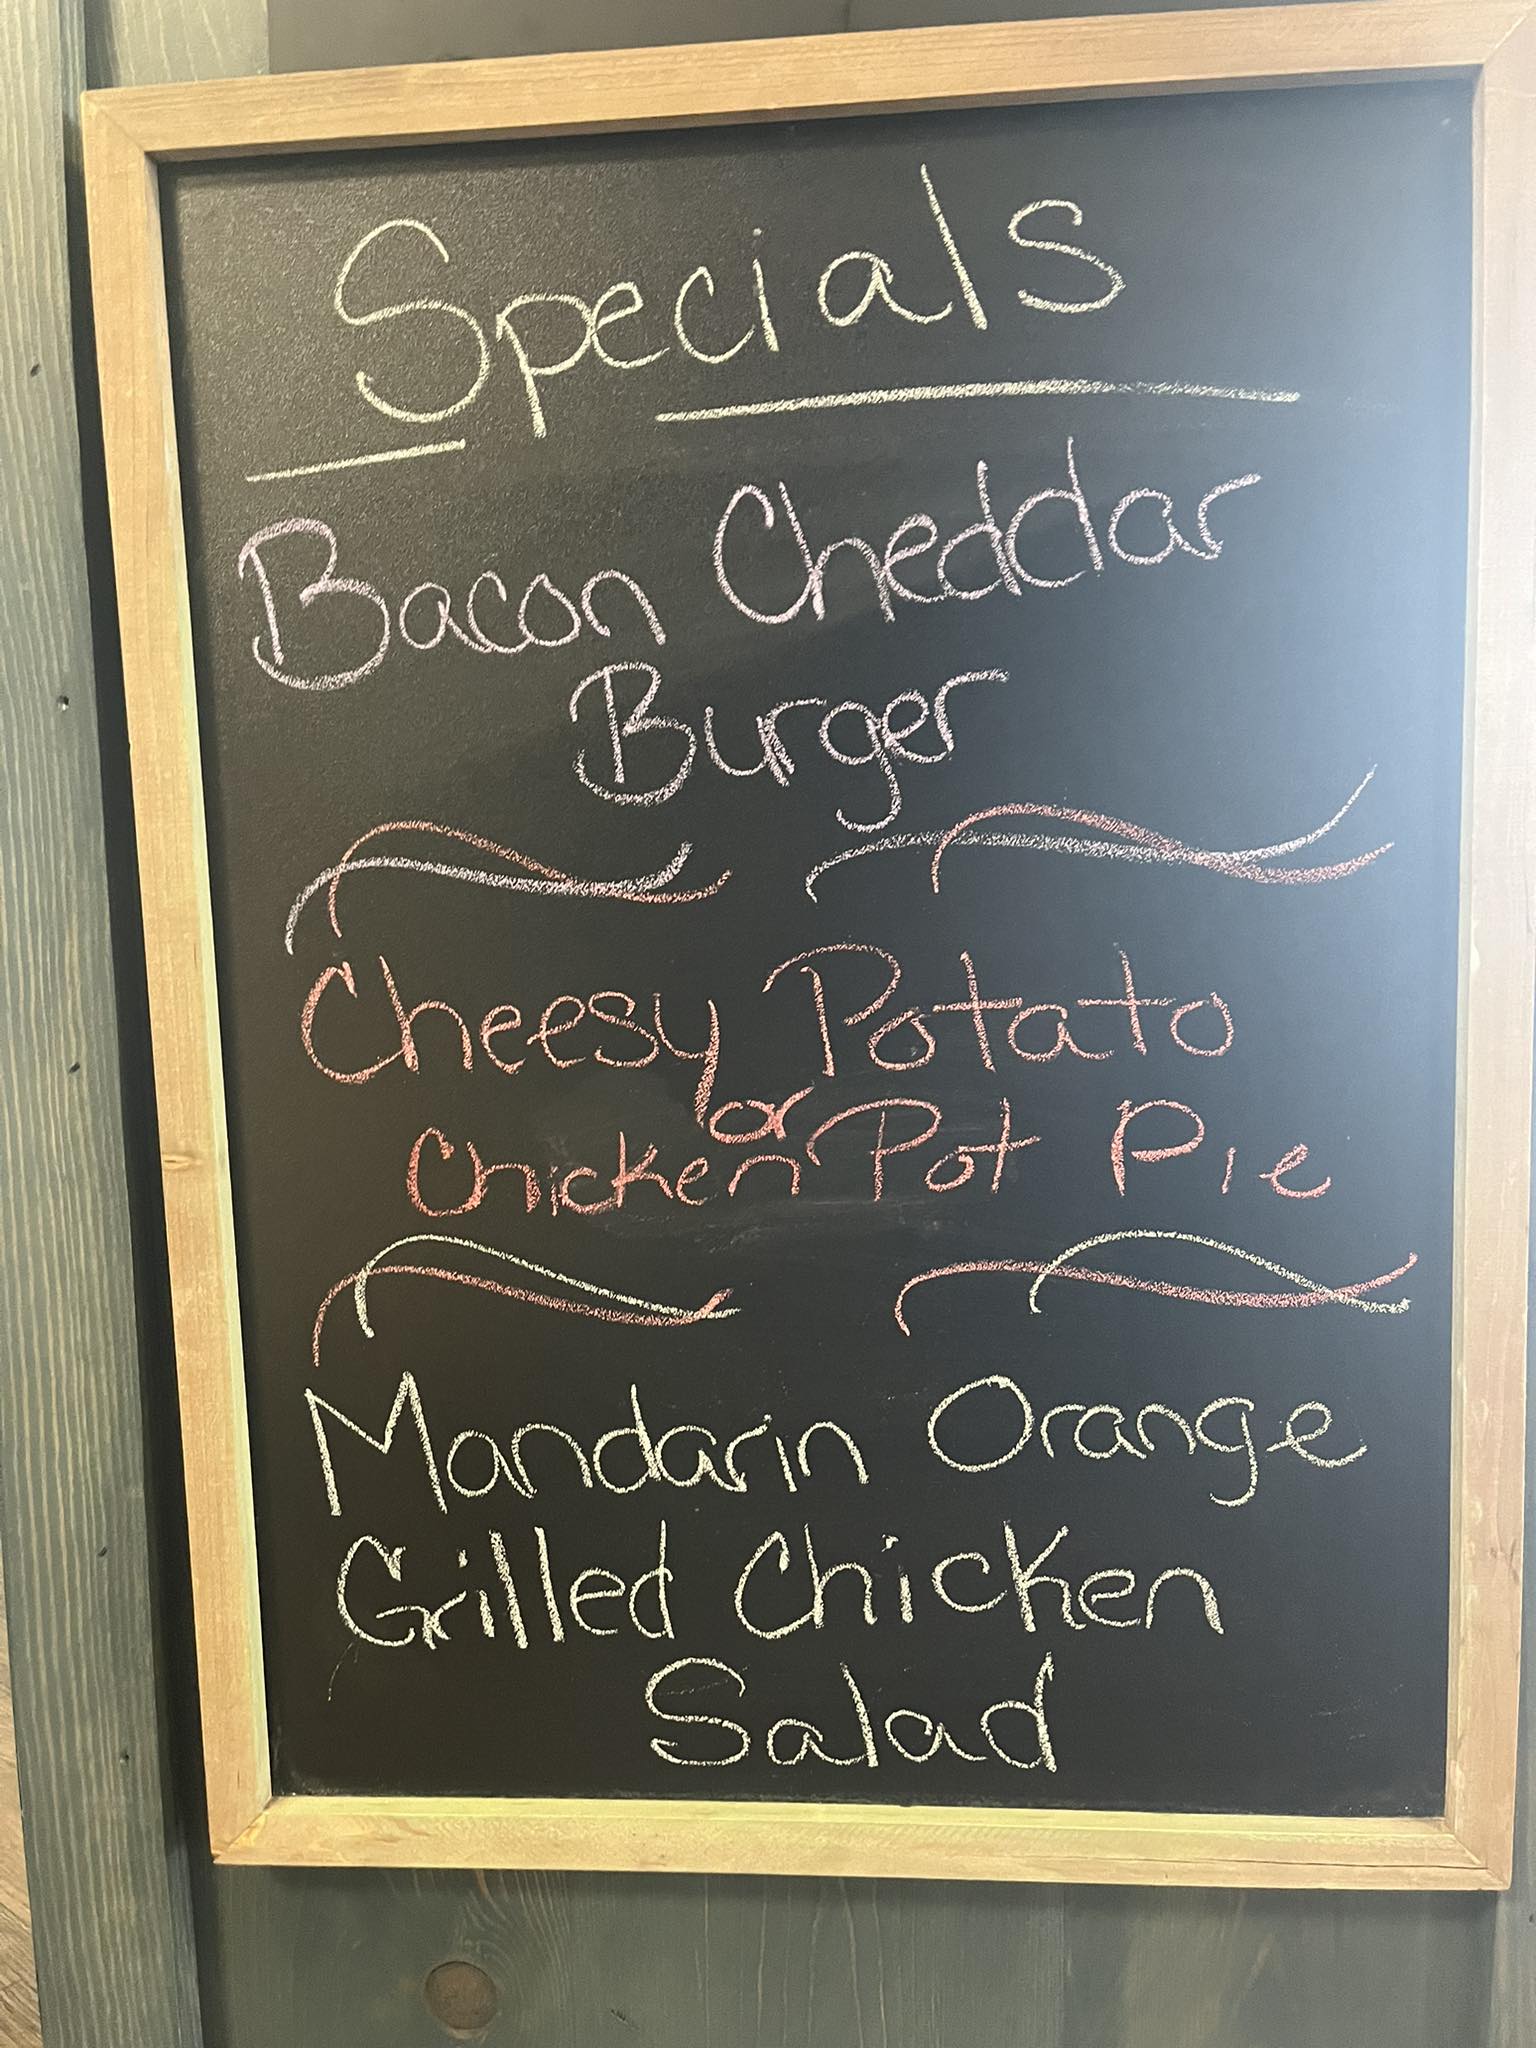 Specials
Bacon Cheddar
Burger
Cheesy Potato
or
Chicken Pot Pie
Mandarin Orange
Grilled Chicken
Salad